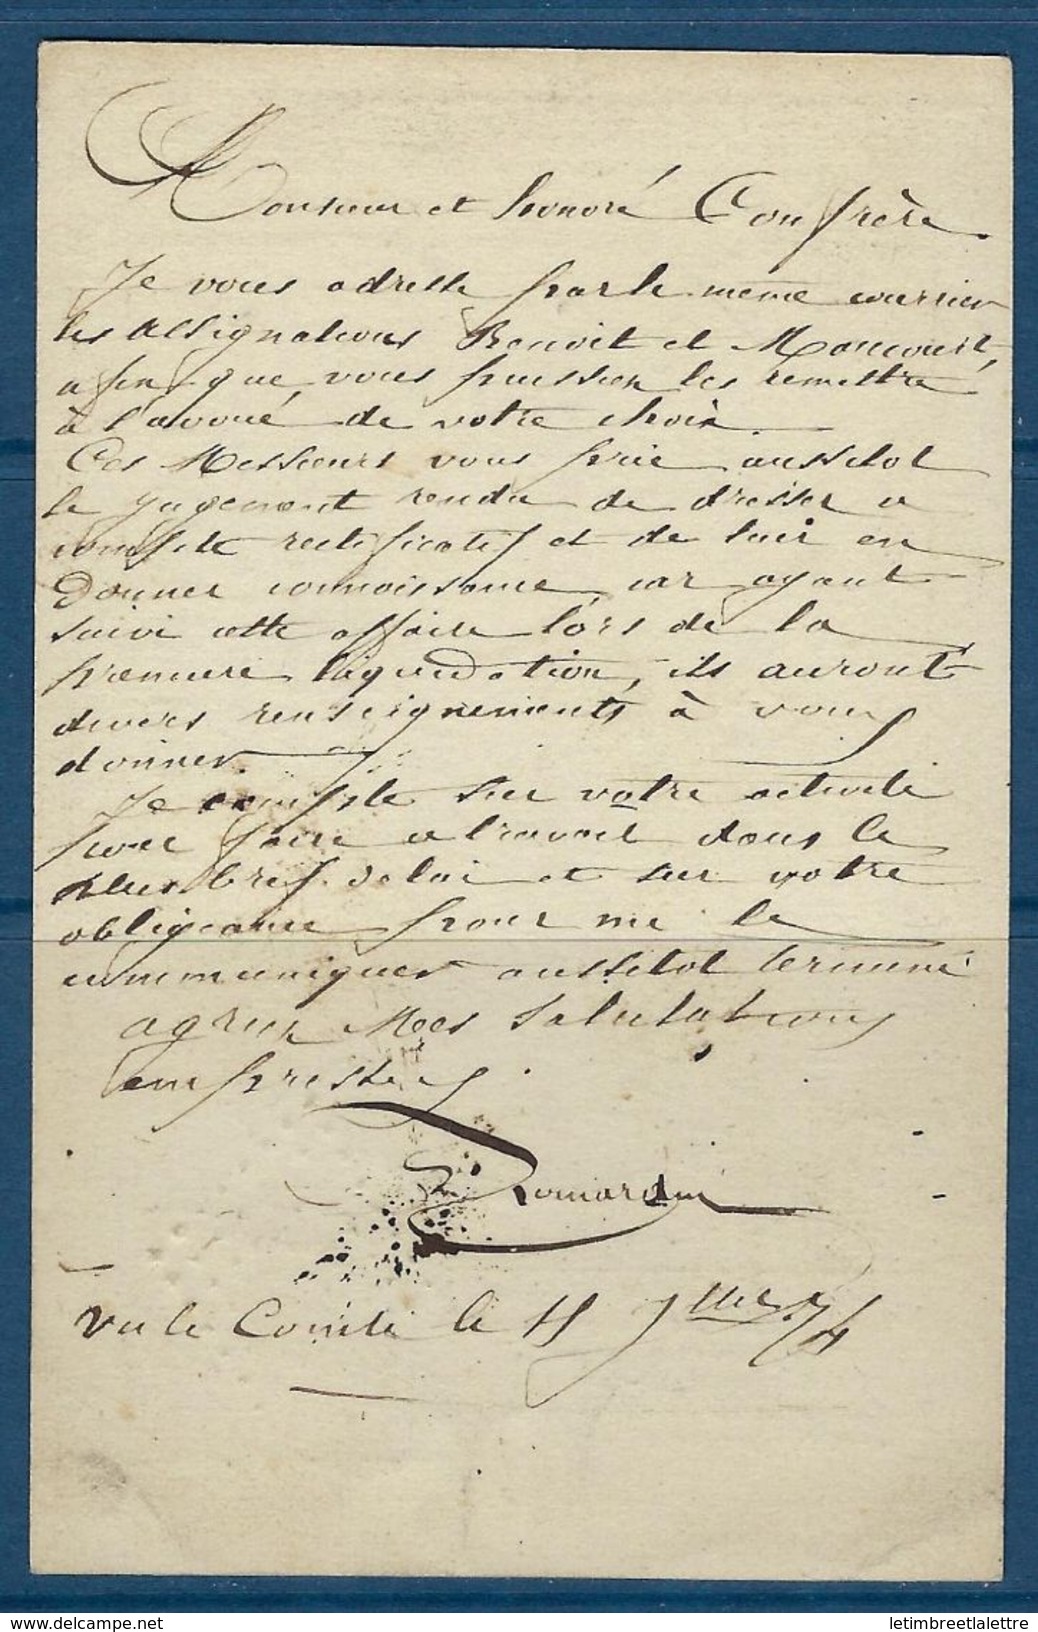 Monsieur et honoré Confrère.
Je vous adresse par le même courrier
les assignations Benoit et Moncourt,
afin que vous puissiez les remettre
à l'avoué de votre choix.
Ces Messieurs vous prie aussitot
le jugement rendu de dresser a
compte rectificatif et de leur en
donner connaissance, car ayant
suivi cette affaire lors de la
première liquidation, ils auront
divers renseignements à vous
donner.
Je compte sur votre activité
pour faire a travail dans le
plus bref delai et sur votre
obligeance pour me le
communiquer aussitot terminé
agréez Mes Salutations
empressées.
Romardin
Vic le Comte le 11 9bre 74
delcampe.net
letimbreetlalettre